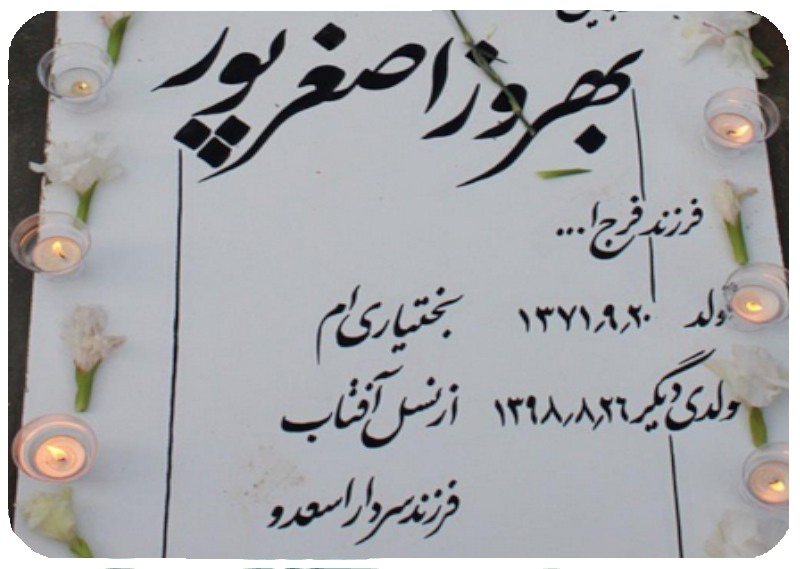 بهروز اصغرپور
فرزند فرج ا...
تولد ۱۳۷۱٫۹٫۲۰ بختیاری ام
تولدی دیگر ۱۳۹۸٫۸٫۲۶ از نسل آفتاب
فرزند سردار اسعد و